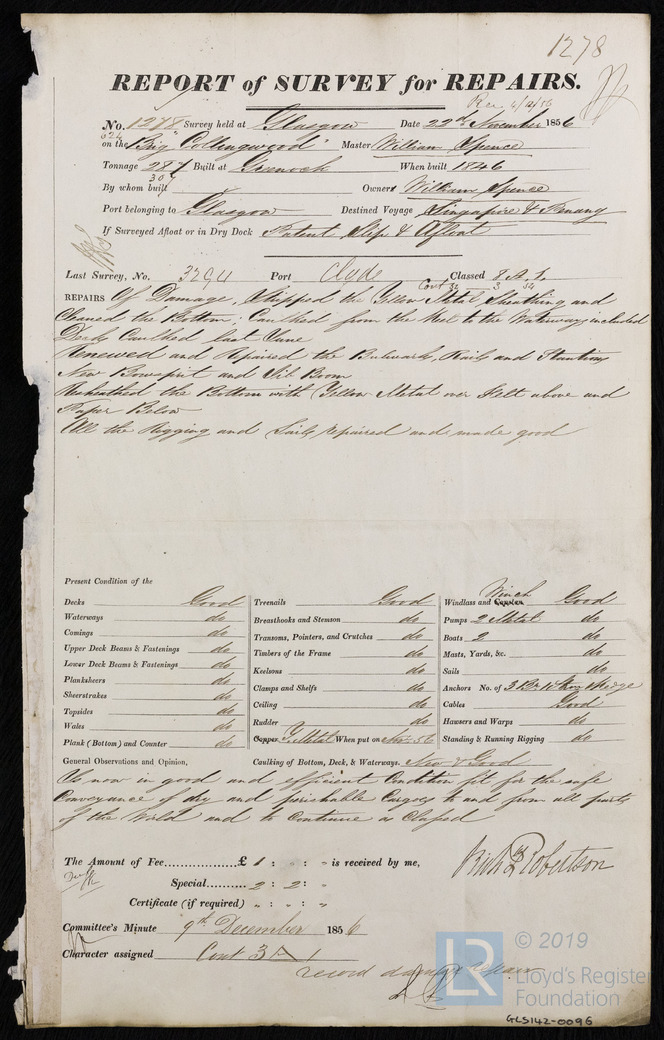 1278
REPORT of SURVEY for REPAIRS.
Rec 6/12/56
No. 1278 Survey held at Glasgow Date 22nd November 1856
on the Brig "Collingwood" Master William Spence
Tonnage 287 Built at Greenock When built 1846
By whom built Owners William Spence
Port belonging to Glasgow Destined Voyage Singapore & Penang
If Surveyed Afloat or in Dry Dock Patent Slip & Afloat
Last Survey, No. 3294 Port Clyde Classed 8 A.1.
REPAIRS Of Damage, Stripped the Yellow Metal Sheathing and
Cleaned the Bottom. Caulked from the Keel to the Waterways included
Decks Caulked last June
Renewed and Repaired the Bulwarks, Rails and Stantions
New Bowsprit and Jib Boom
Resheathed the Bottom with Yellow Metal over Felt above and
Paper Below
All the Rigging and Sails repaired and made good
Present Condition of the
Decks Good
Waterways do
Comings do
Upper Deck Beams & Fastenings do
Lower Deck Beams & Fastenings do
Planksheers do
Sheerstrakes do
Topsides do
Wales do
Plank (Bottom) and Counter do
Treenails Good
Breasthooks and Stemson do
Transoms, Pointers, and Crutches do
Timbers of the Frame do
Keelsons do
Clamps and Shelfs do
Ceiling do
Rudder do
Copper Y Metal When put on Nov 56
Caulking of Bottom, Deck, & Waterways. New & Good
Windlass and Capstan Winch Good
Pumps 2 Metal do
Boats 2 do
Masts, Yards, &c. do
Sails do
Anchors No. of 3 Br
Cables Good
Hawsers and Warps do
Standing & Running Rigging do
General Observations and Opinion,
Is now in good and efficient Condition fit for the safe
Conveyance of dry and perishable Cargoes to and from all parts
of the World and to Continue as Classed
The Amount of Fee £ 1 : " : " is received by me,
Special 2 : 2 : "
Certificate (if required) " : " : "
Richd Robertson
Committee's Minute 9th December 1856
Character assigned Cont 8 A 1
record damage repair
LR
© 2019
Lloyd's Register
Foundation
GLS142-0096